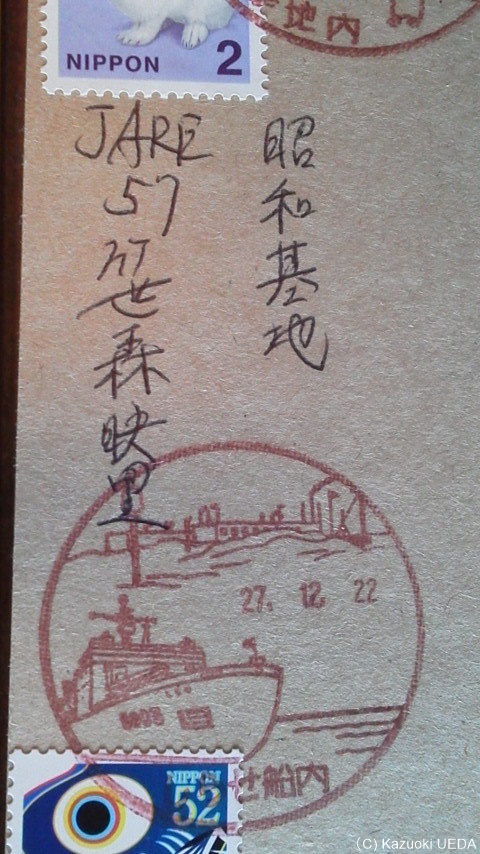 地内
NIPPON 2
昭和基地
JARE
57
笹森映里
27. 12. 22
せ船内
NIPPON
52
(C) Kazuoki UEDA